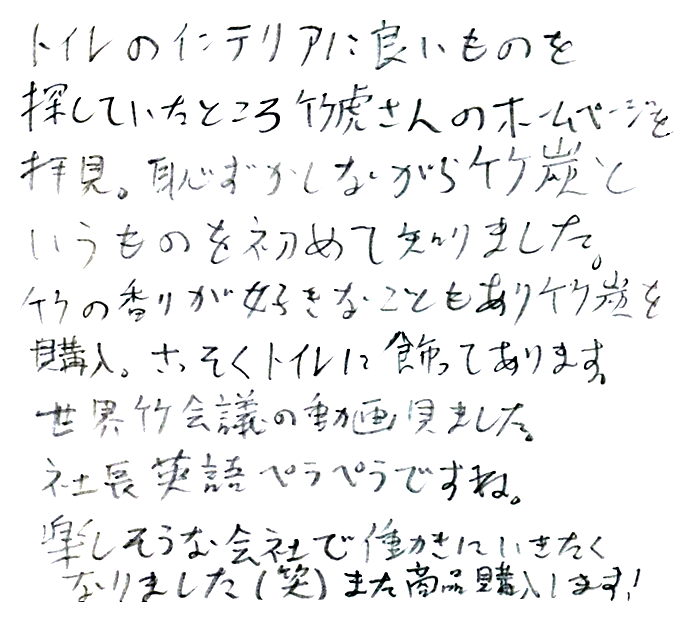 トイレのインテリアに良いものを
探していたところ竹虎さんのホームページを
拝見。恥ずかしながら竹炭と
いうものを初めて知りました。
竹の香りが好きなこともあり竹炭を
購入。さっそくトイレに飾ってあります。
世界竹会議の動画見ました。
社長英語ペラペラですね。
楽しそうな会社で働きにいきたく
なりました(笑)また商品購入します!